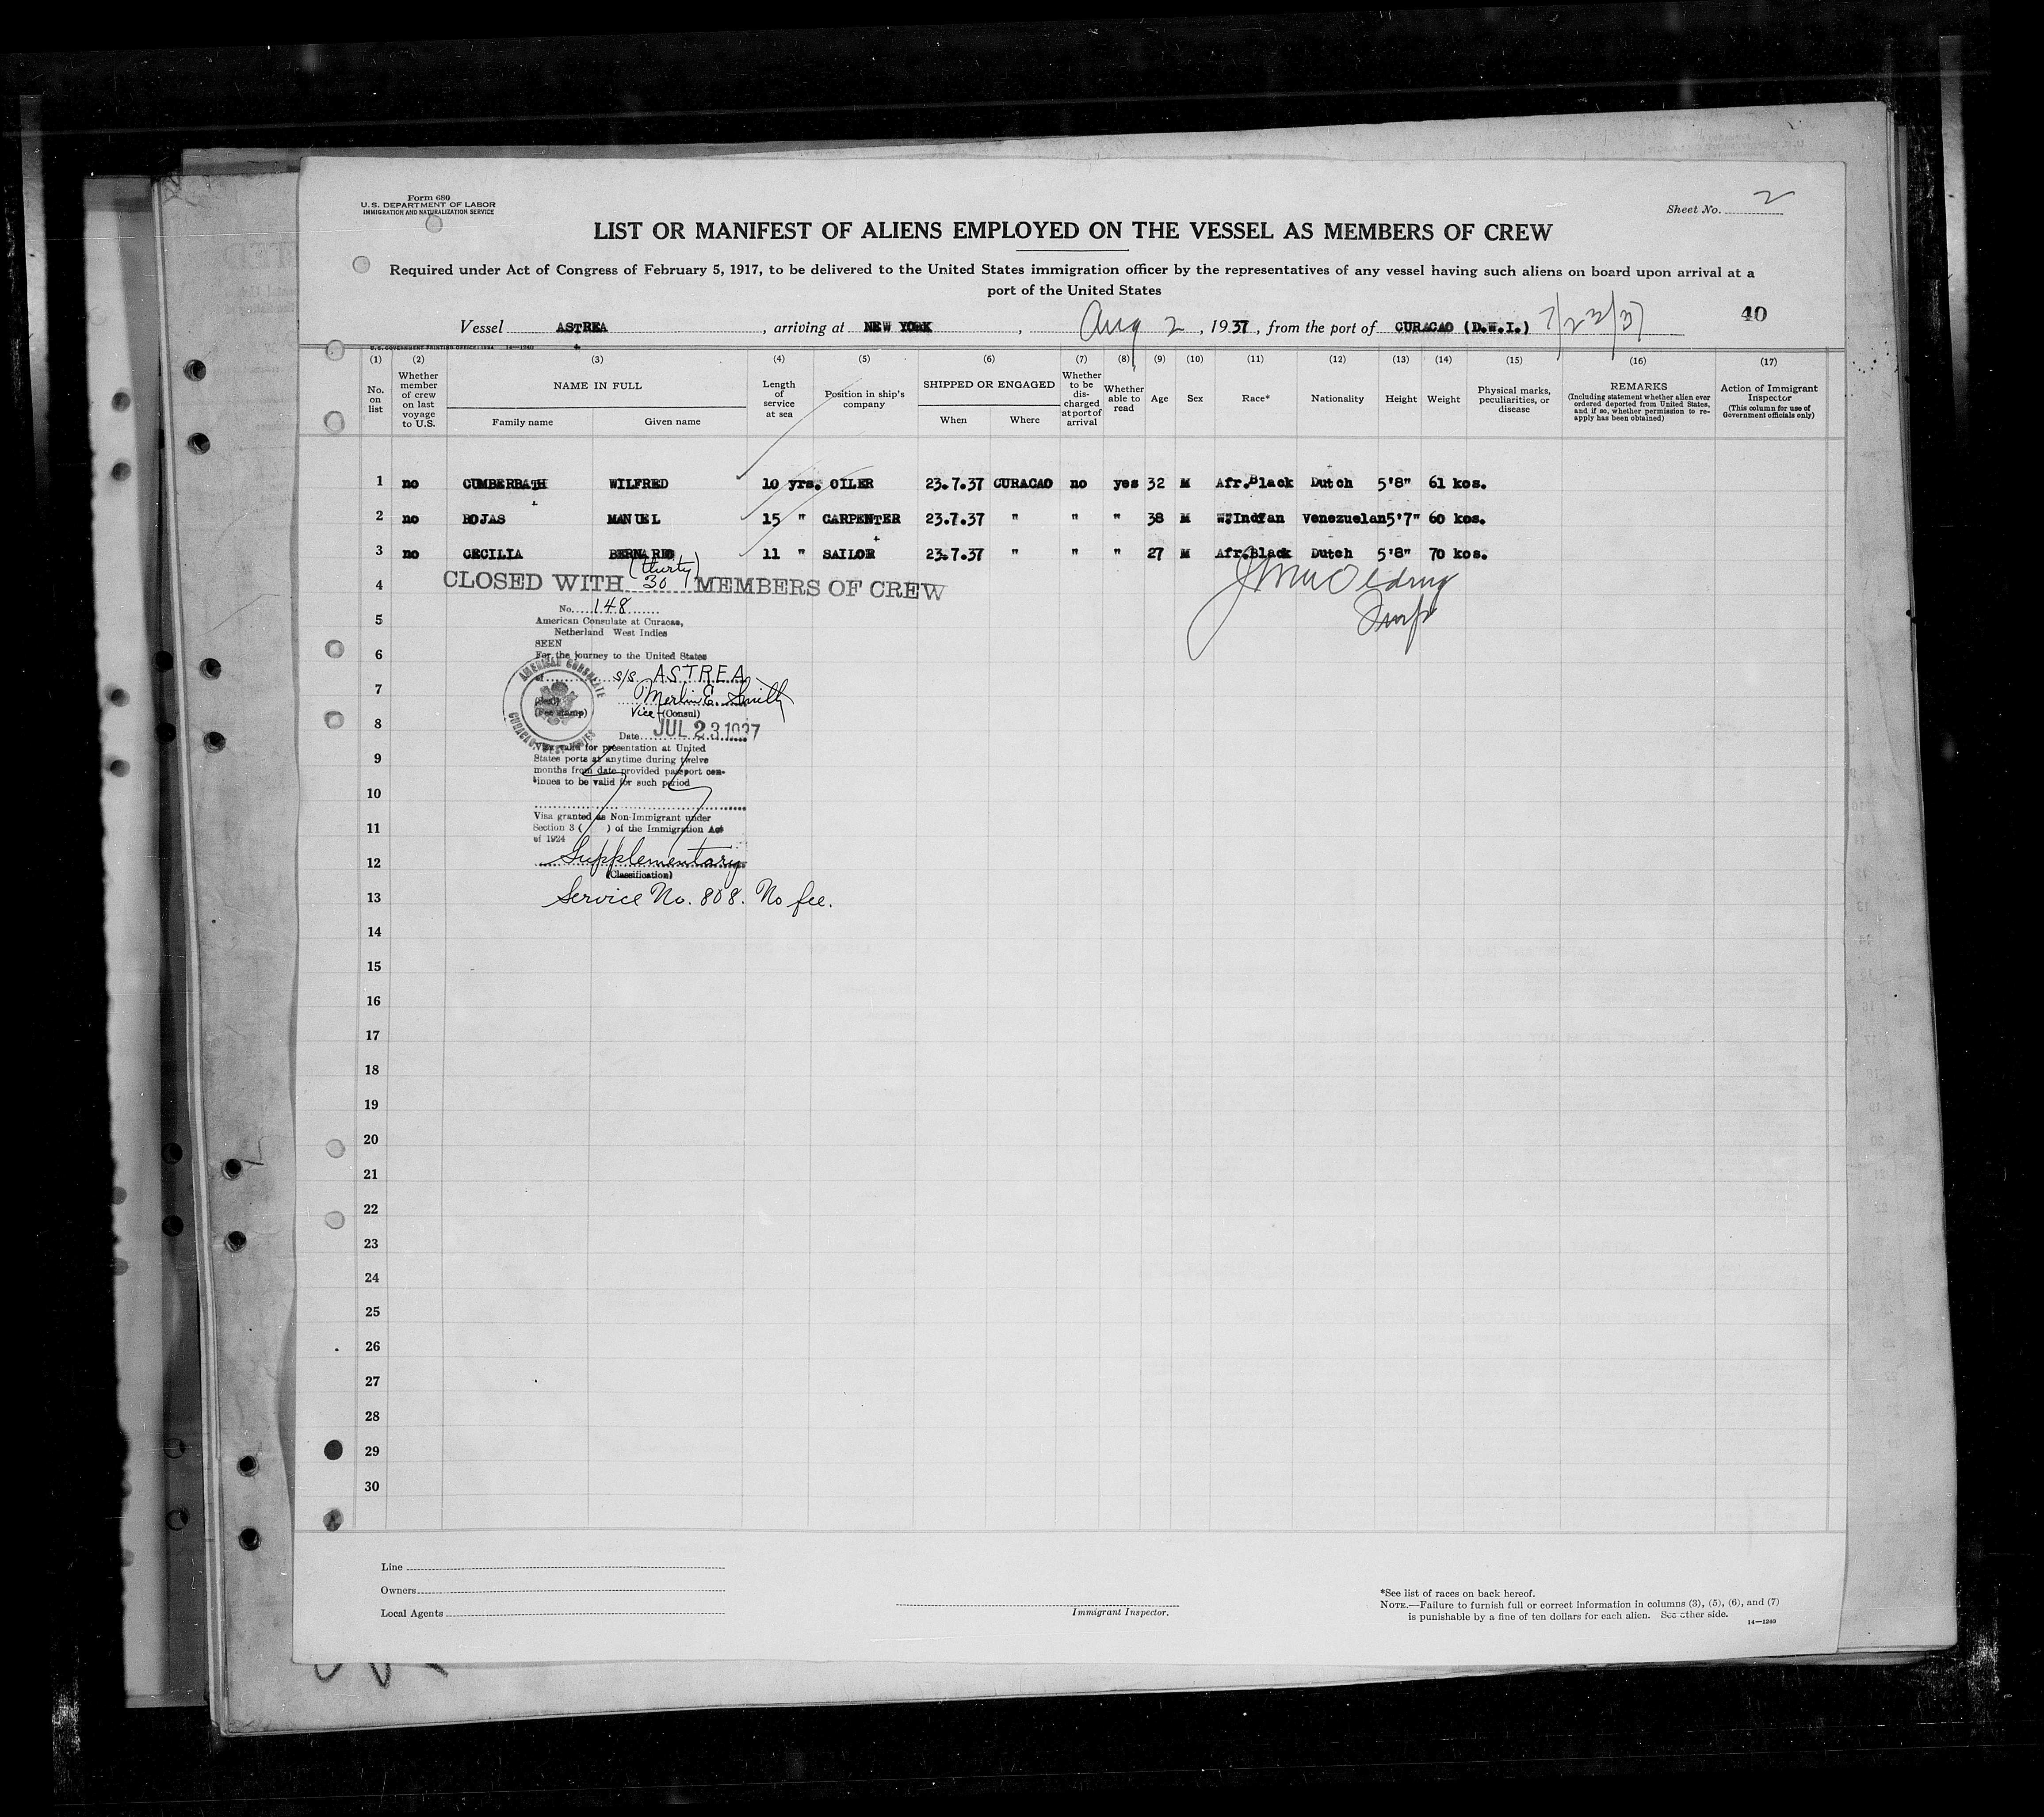 Form 680
U.S. DEPARTMENT OF LABOR
IMMIGRATION AND NATURALIZATION SERVICE
Sheet No. 2
LIST OR MANIFEST OF ALIENS EMPLOYED ON THE VESSEL AS MEMBERS OF CREW
Required under Act of Congress of February 5, 1917, to be delivered to the United States immigration officer by the representatives of any vessel having such aliens on board upon arrival at a
port of the United States
Vessel ASTREA, arriving at NEW YORK, Aug 2, 1937, from the port of CURACAO (D.W.I.) 7/23/37 40
U.S. GOVERNMENT PRINTING OFFICE: 1934 14—1240
(1) (2) (3) (4) (5) (6) (7) (8) (9) (10) (11) (12) (13) (14) (15) (16) (17)
No. on list
Whether member of crew on last voyage to U.S.
NAME IN FULL
Family name
Given name
Length of service at sea
Position in ship's company
SHIPPED OR ENGAGED
When
Where
Whether to be discharged at port of arrival
Whether able to read
Age
Sex
Race*
Nationality
Height
Weight
Physical marks, peculiarities, or disease
REMARKS
(Including statement whether alien ever ordered deported from United States, and if so, whether permission to reapply has been obtained)
Action of Immigrant Inspector
(This column for use of Government officials only)
1 no CUMBERBATH WILFRED 10 yrs. OILER 23.7.37 CURACAO no yes 32 M Afr.Black Dutch 5'8" 61 kos.
2 no ROJAS MANUEL 15 " CARPENTER 23.7.37 " " " 38 M W.Indian Venezuelan 5'7" 60 kos.
3 no CECILIA BERNARD 11 " SAILOR 23.7.37 " " " 27 M Afr.Black Dutch 5'8" 70 kos.
(thirty)
4 CLOSED WITH 30 MEMBERS OF CREW
No. 148
5 American Consulate at Curacao,
Netherland West Indies
SEEN
6 For the journey to the United States
of s/s ASTREA
7 Merlin E. Smith
(Seal)
(Fee stamp) Vice (Consul)
8 Date JUL 23 1937
AMERICAN CONSULATE
Visa valid for presentation at United
9 States ports at anytime during twelve
months from date provided passport con-
tinues to be valid for such period
10
Visa granted as Non-Immigrant under
11 Section 3 ( ) of the Immigration Act
of 1924
12 Supplementary
(Classification)
13 Service No. 808. No fee.
14
15
16
17
18
19
20
21
22
23
24
25
26
27
28
29
30
Line
Owners
Local Agents
Immigrant Inspector.
*See list of races on back hereof.
NOTE.—Failure to furnish full or correct information in columns (3), (5), (6), and (7)
is punishable by a fine of ten dollars for each alien. See other side.
14—1240